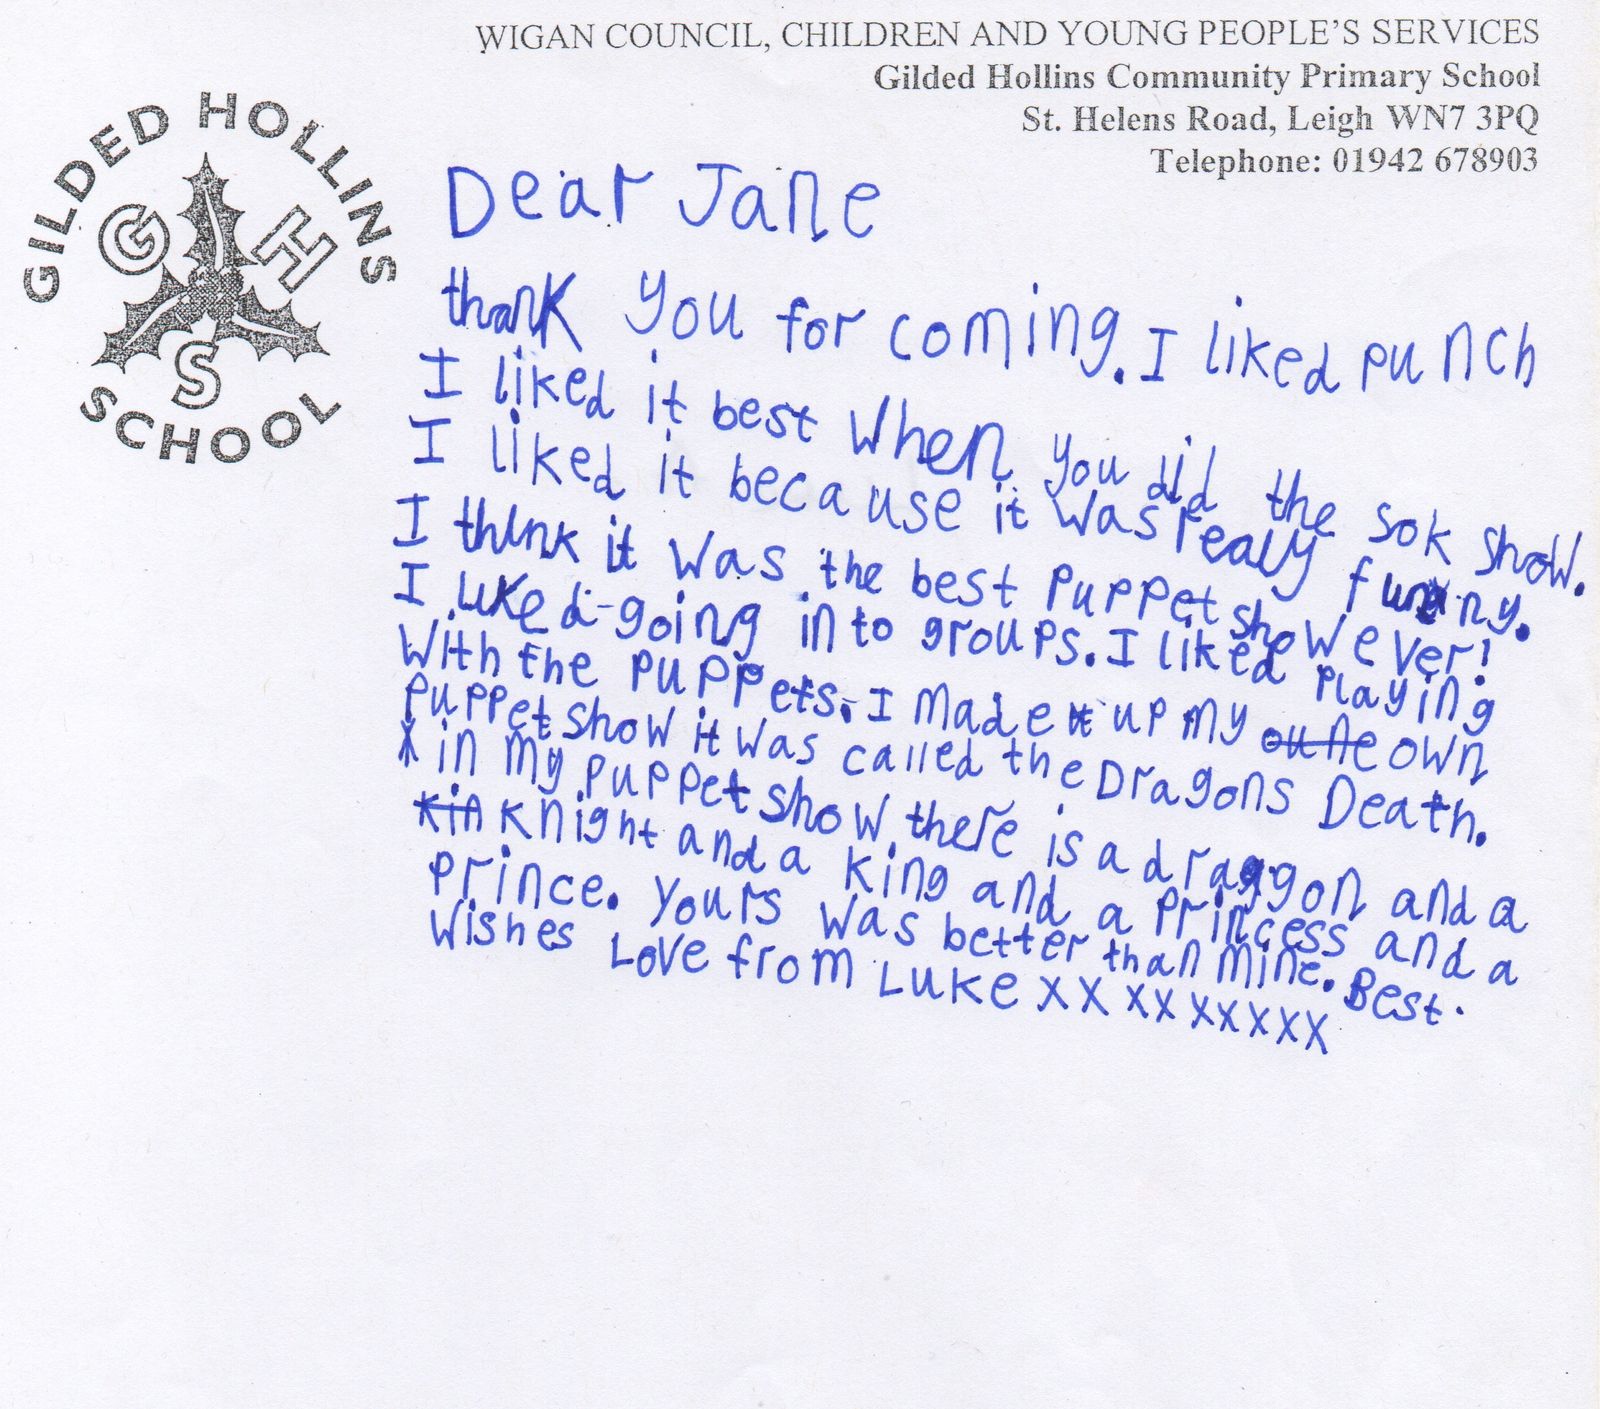 WIGAN COUNCIL, CHILDREN AND YOUNG PEOPLE'S SERVICES
Gilded Hollins Community Primary School
St. Helens Road, Leigh WN7 3PQ
Telephone: 01942 678903
GILDED HOLLINS
G H
S
SCHOOL
Dear Jane
thank you for coming. I liked punch
I liked it best when you did the sok show.
I liked it because it was realy funny.
I think it was the best puppet show ever!
I liked going in to groups. I liked playing
with the puppets. I made it up my oune own
puppet show it was called the Dragons Death.
in my puppet show there is a draggon and a
kin knight and a king and a princess and a
prince. yours was better than mine. Best.
wishes Love from Luke xx xx xxxxx